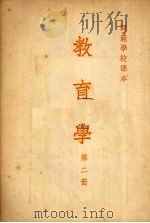 師範學校課本
教育學
第二冊